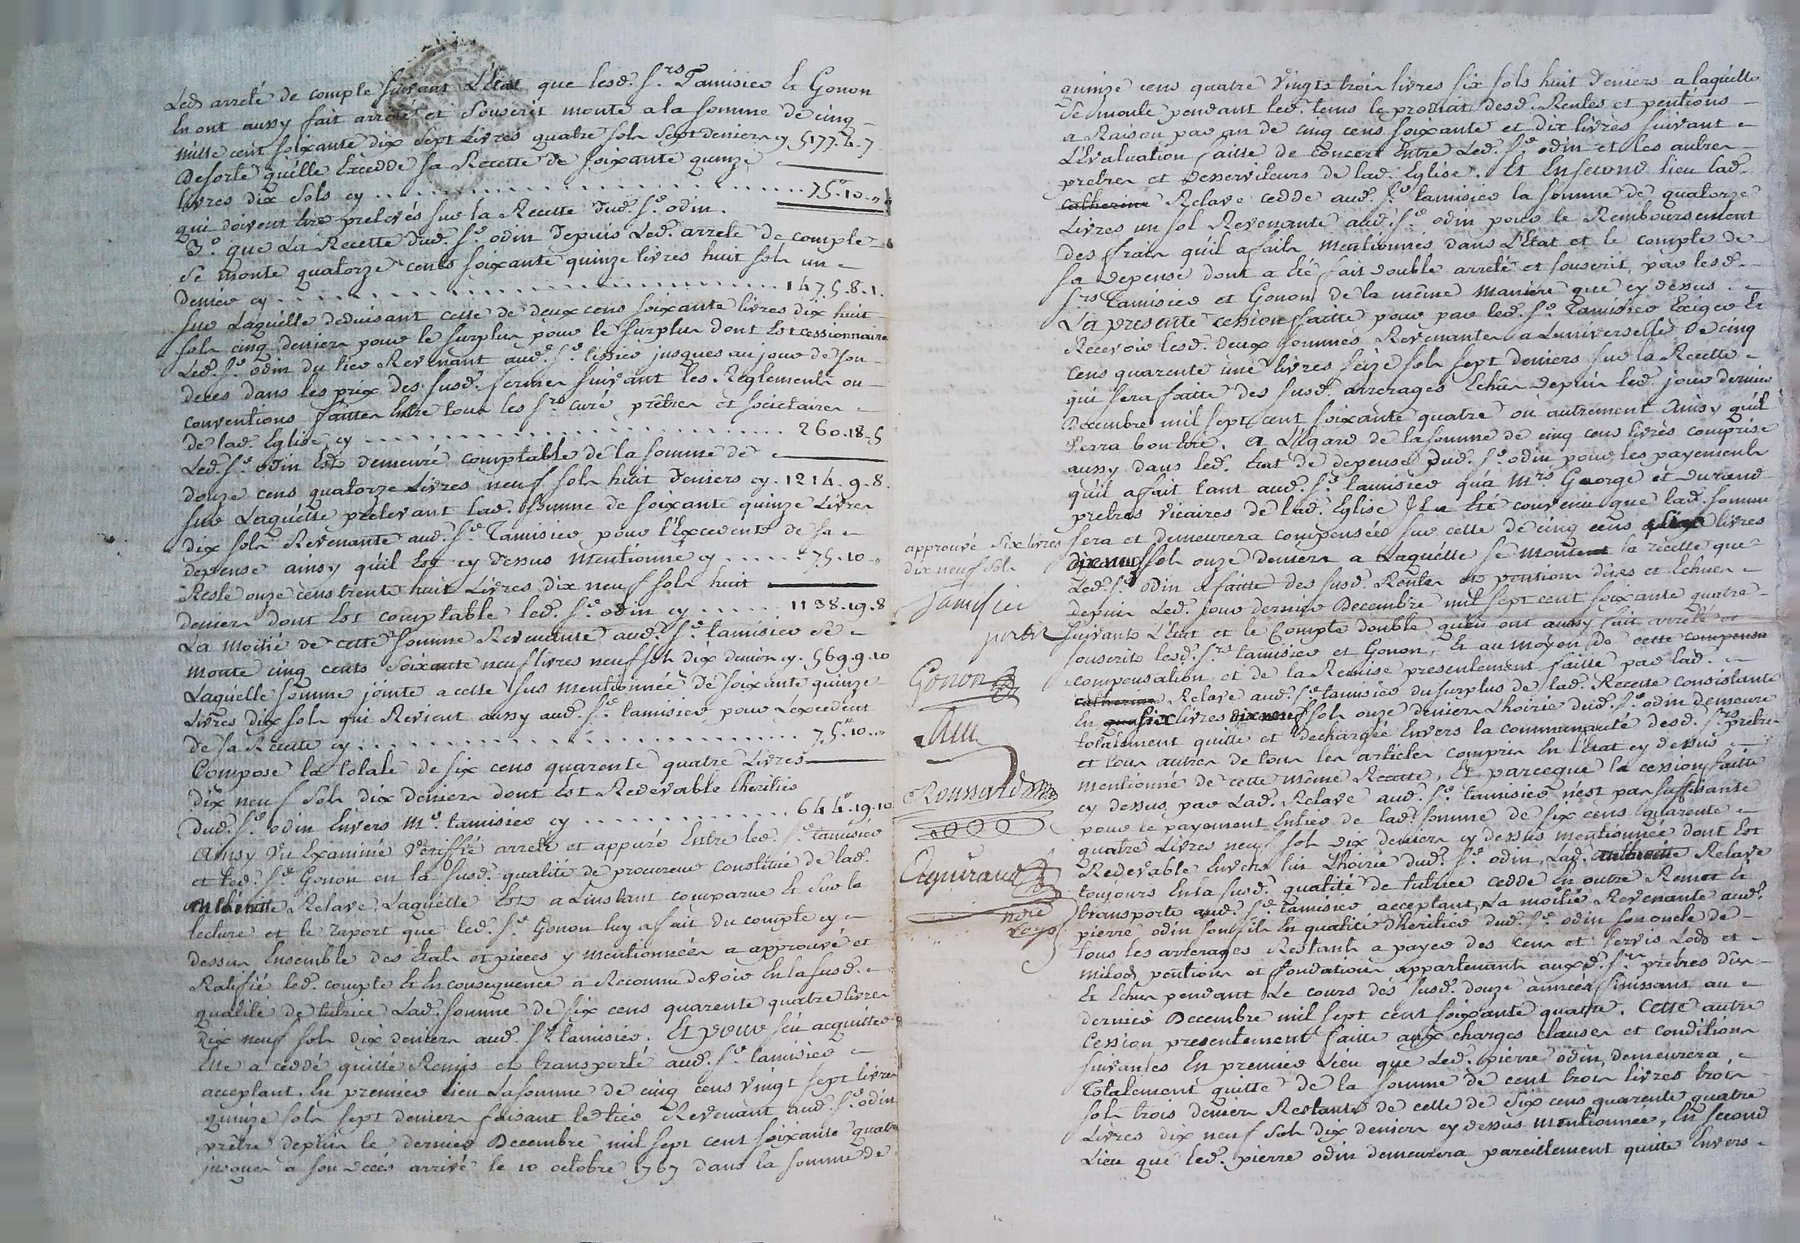 Led. arreté de compte suivant L'Etat que lesd. Srs Tamisier Et Gonon
En ont aussy fait arreté et Souscrit monte a la somme de cinq
mille cent soixante dix sept Livres quatre sols sept deniers cy 5177.4.7
Desorte quelle Excedde sa Recette de soixante quinze
livres dix sols cy 75.10.
qui doivent être prelevés sur la Recette dud. Sr. odin.
3°. que La Recette dud. Sr. odin depuis Led. arreté de compte
Se monte quatorze cents soixante quinze livres huit sols un
denier cy 1475.8.1.
sur Laquelle deduisant celle de deux cens soixante livres dix huit
sols cinq deniers pour le surplus pour le surplus dont Est cessionnaire
Led. Sr. odin du tier Revenant aud. Sr. jusques au jour de son
deces dans les prix des susd. fermes suivant les Reglements ou
conventions faittes Entre tous les Srs curé prêtres et societaires
de lad. Eglise cy 260.18.5
Led. Sr. odin Est demeuré comptable de la somme de
douze cens quatorze Livres neuf sols huit deniers cy. 1214.9.8.
sur Laquelle prelevant lad. somme de soixante quinze Livres
dix sols Revenante aud. Sr. Tamisier pour l'Excedente de sa
depense ainsy quil Est cy dessus mentionné cy 75.10.
Reste onze cens trente huit Livres dix neuf sols huit
deniers dont Est comptable led. Sr. odin cy 1138.19.8
La moitié de cette somme Revenante aud. Sr. tamisier Se
monte cinq cents soixante neuf livres neuf sols dix deniers cy. 569.9.10
Laquelle somme jointe a celle sus mentionnée de soixante quinze
Livres dix sols qui Revient aussy aud. Sr. tamisier pour Lexcedent
de sa Recette cy 75.10.
Compose la totale de six cens quarente quatre Livres
dix neuf sols dix deniers dont Est Redevable lheritier
dud. Sr. odin Envers Mr. tamisier cy 644.19.10
Ainsy Vu Examiné Verifié arreté et appuré Entre led. Sr. tamisier
et led. Sr. Gonon en la susd. qualité de procureur constitué de lad.
Relave, Laquelle Est a Linstant comparue Et sur la
lecture et le raport que led. Sr. Gonon luy a fait du compte cy
dessus Ensemble des Etats et pieces y mentionnées a approuvé et
Ratifié led. compte Et En consequence a Reconnu devoir En la susd.
qualité de tutrice Lad. somme de six cens quarente quatre livres
dix neuf sols dix deniers aud. Sr. tamisier. Et pour sen acquitter
Elle a ceddé quitté Remis et transporté aud. Sr. tamisier
acceptant. En premier lieu La somme de cinq cens vingt sept livres
quinze sols sept deniers faisant le tier Revenant aud. Sr. odin
prêtre depuis le dernier Decembre mil sept cent soixante quatre
jusques a son decés arrivé le 10 octobre 1767 dans la somme de
approuvé six livres
dix neuf sols
tamisier
Gonon
Roussard
nore
Royal
quinze cens quatre Vingts trois livres six sols huit deniers a laquelle
se monte pendant led. tems le prorat desd. Rentes et pentions
a Raison par an de cinq cens soixante et dix livres suivant
L'Evaluation faitte de concert Entre Led. Sr. odin et les autres
pretres et Desserviteurs de lad. Eglise. Et En second lieu Lad.
Catherine Relave cedde aud. Sr. tamisier la somme de quatorze
Livres un sol Revenante aud. Sr. odin pour le Remboursement
des frais quil a faits mentionnés dans L'Etat et le compte de
sa depense dont a été fait double arreté et souscrit, par lesd.
Srs Tamisier et Gonon de la même maniere que cy dessus.
La presente cession faitte pour par led. Sr. Tamisier Exiger Et
Recevoir lesd. deux sommes Revenantes a Luniverselle de cinq
cens quarente une livres seize sols sept deniers sur la Recette
qui sera faitte des susd. arrerages Echûs depuis led. jour dernier
Decembre mil sept cent soixante quatre ou autrement Ainsy quil
Verra bon Etre. A L'égard de la somme de cinq cens livres comprise
aussy dans led. Etat de depense dud. Sr. odin pour les payements
quil a fait tant aud. Sr. tamisier qua Mrs George et durand
pretres vicaires de lad. Eglise Il a Eté convenu que lad. somme
sera et demeurera compensée sur celle de cinq cens six livres
dix neuf sols onze deniers a Laquelle se monte la recette que
Led. Sr. odin a faitte des susd. Rentes et pentions dües et Echues
depuis Led. jour dernier Decembre mil sept cent soixante quatre
suivant L'Etat et le Compte double quen ont aussy fait arreté et
souscrit lesd. Srs tamisier et Gonon, Et au moyen de cette compensa
compensation et de la Remise presentement faitte par lad.
Catherine Relave aud. Sr. tamisier du surplus de lad. Recette consistante
En six livres dix neuf sols onze deniers Lhoirie dud. Sr. odin demeure
totalement quitte et dechargée Envers la communauté desd. Srs pretres
et tous autres de tous les articles compris En l'Etat cy dessus
mentionné de cette même Recette, Et parceque la cession faitte
cy dessus par Lad. Relave aud. Sr. tamisier nest pas suffisante
pour le payement Entier de lad. somme de six cens quarente
quatre Livres neuf sols dix deniers cy dessus mentionnée dont Est
Redevable Envers lui Lhoirie dud. Sr. odin, Lad. Catherine Relave
toujours En la susd. qualité de tutrice cedde En outre Remet Et
transporte aud. Sr. tamisier acceptant, La moitié Revenante aud.
pierre odin son fils En qualité d'heritier dud. Sr. odin son oncle de
tous les arrerages Restants a payer des cens et servis Lods et
milods pentions et fondations appartenants auxd. Srs pretres dûs
Et Echus pendant Le cours des susd. douze années finissant au
dernier Decembre mil sept cent soixante quatre. Cette autre
Cession presentement faitte aux charges clauses et conditions
suivantes En premier Lieu que Led. pierre odin demeurera,
Totalement quitte de la somme de cent trois livres trois
sols trois deniers Restante de celle de six cens quarente quatre
Livres dix neuf sols dix deniers cy dessus mentionnée, En second
Lieu que led. pierre odin demeurera pareillement quitte Envers